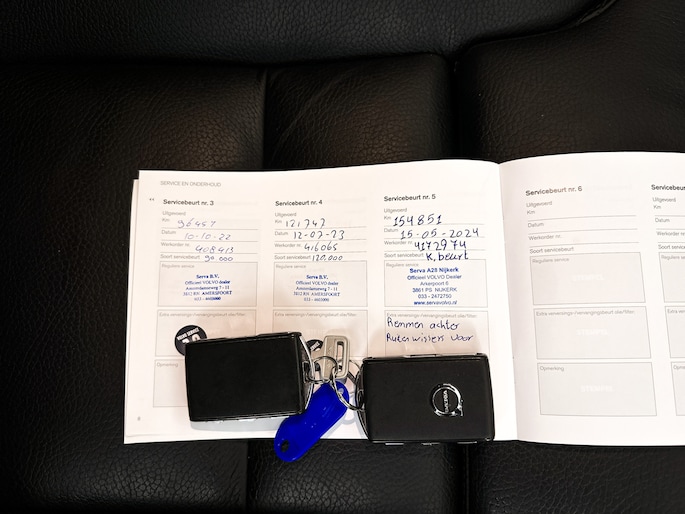 SERVICE EN ONDERHOUD
Servicebeurt nr. 3
Uitgevoerd
Km 96457
Datum 10-10-22
Werkorder nr. 408413
Soort servicebeurt 90.000
Reguliere service
Serva B.V.
Officieel VOLVO dealer
7 - 11
AMERSFOORT
Extra verversings-/vervangingsbeurt olie/filter:
Opmerking
6
Servicebeurt nr. 4
Uitgevoerd
Km 121742
Datum 12-07-23
Werkorder nr. 416065
Soort servicebeurt 120.000
Reguliere service
Serva B.V.
Officieel VOLVO dealer
7 - 11
AMERSFOORT
Extra verversings-/vervangingsbeurt olie/filter:
Servicebeurt nr. 5
Uitgevoerd
Km 154851
Datum 15-05-2024
Werkorder nr. 4172974
Soort servicebeurt K.beurt
Reguliere service
Serva A28 Nijkerk
Officieel VOLVO Dealer
Arkerpoort 6
3861 PS NIJKERK
033 - 2472750
www.servavolvo.nl
Extra verversings-/vervangingsbeurt olie/filter:
Remmen achter
Ruitenwissers voor
VOLVO
Servicebeurt nr. 6
Uitgevoerd
Km
Datum
Werkorder nr.
Soort servicebeurt
Reguliere service
STEMPEL
Extra verversings-/vervangingsbeurt olie/filter:
STEMPEL
Opmerking
STEMPEL
Servicebeurt
Uitgevoerd
Km
Datum
Werkorder nr.
Soort
Reguliere
Extra
Opmerking